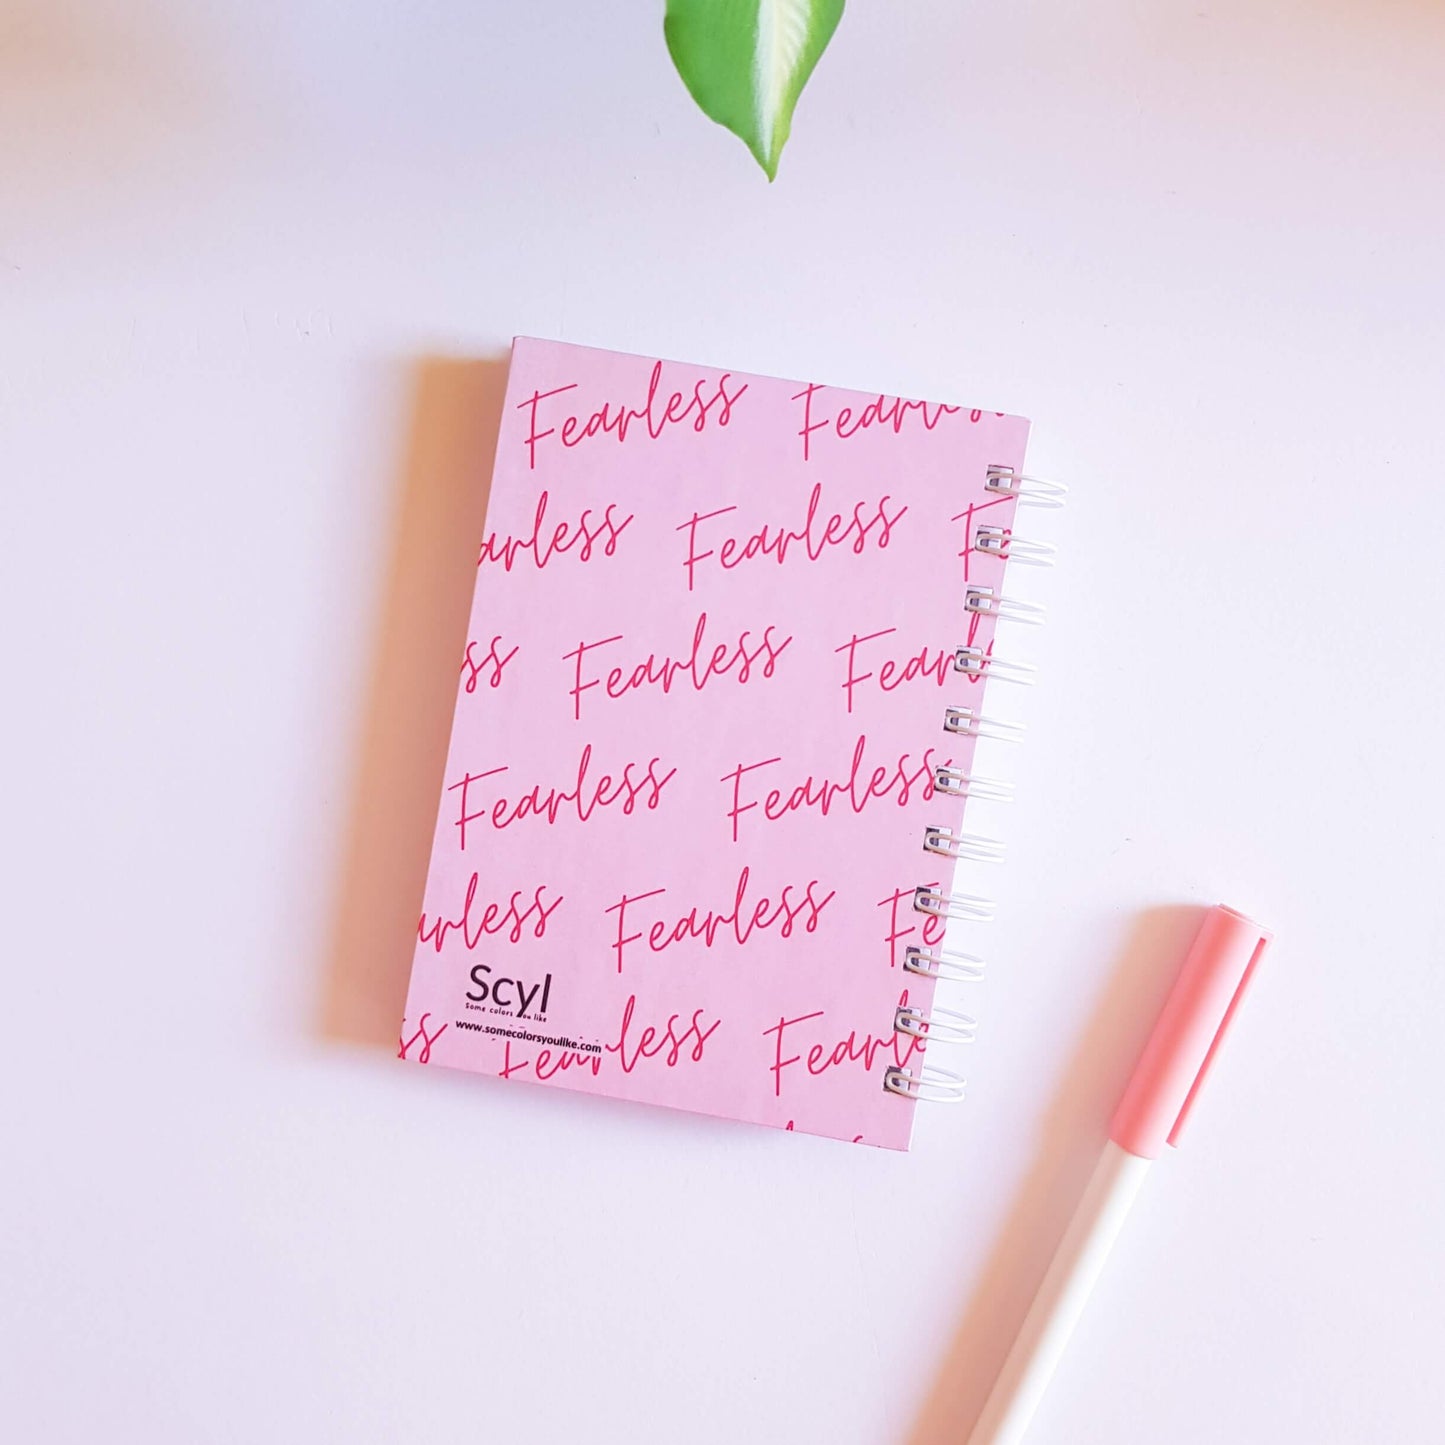 Fearless Fearless
arless Fearless Fe
ss Fearless Fearl
Fearless Fearless
arless Fearless Fe
Scyl
Some colors you like
www.somecolorsyoulike.com
ss Fearless Fearle